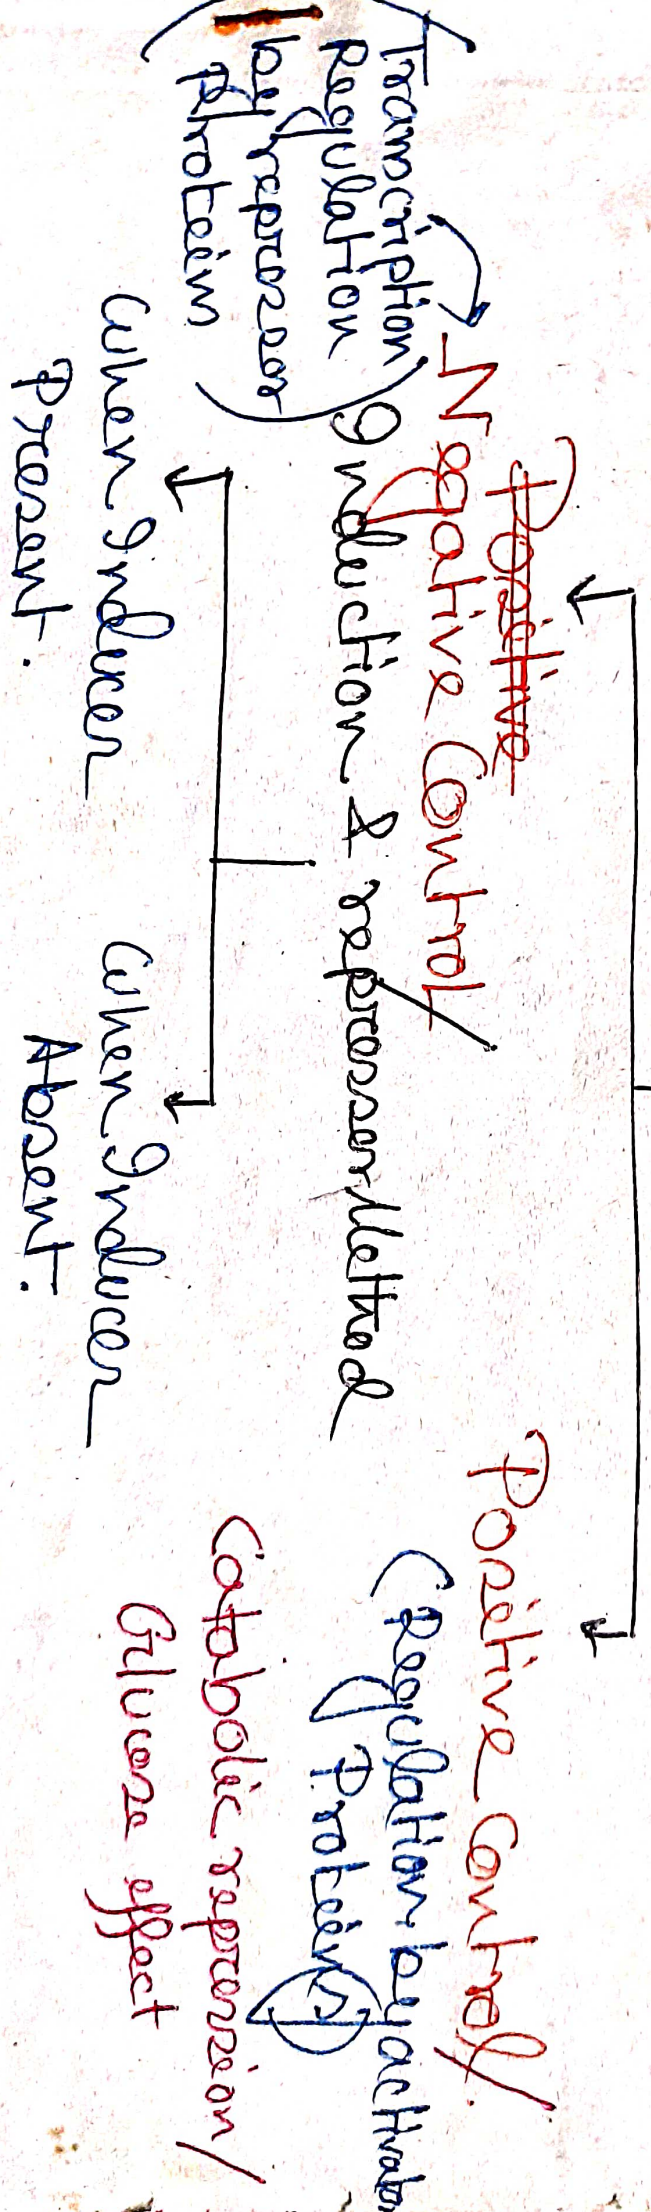 Positive
Negative Control/
(Transcription
Regulation
by represser
Protein)
Induction & represser Method
When Inducer
Present.
When Inducer
Absent.
Positive Control/
(Regulation by activator
Proteins)
Catabolic repression/
Glucose effect